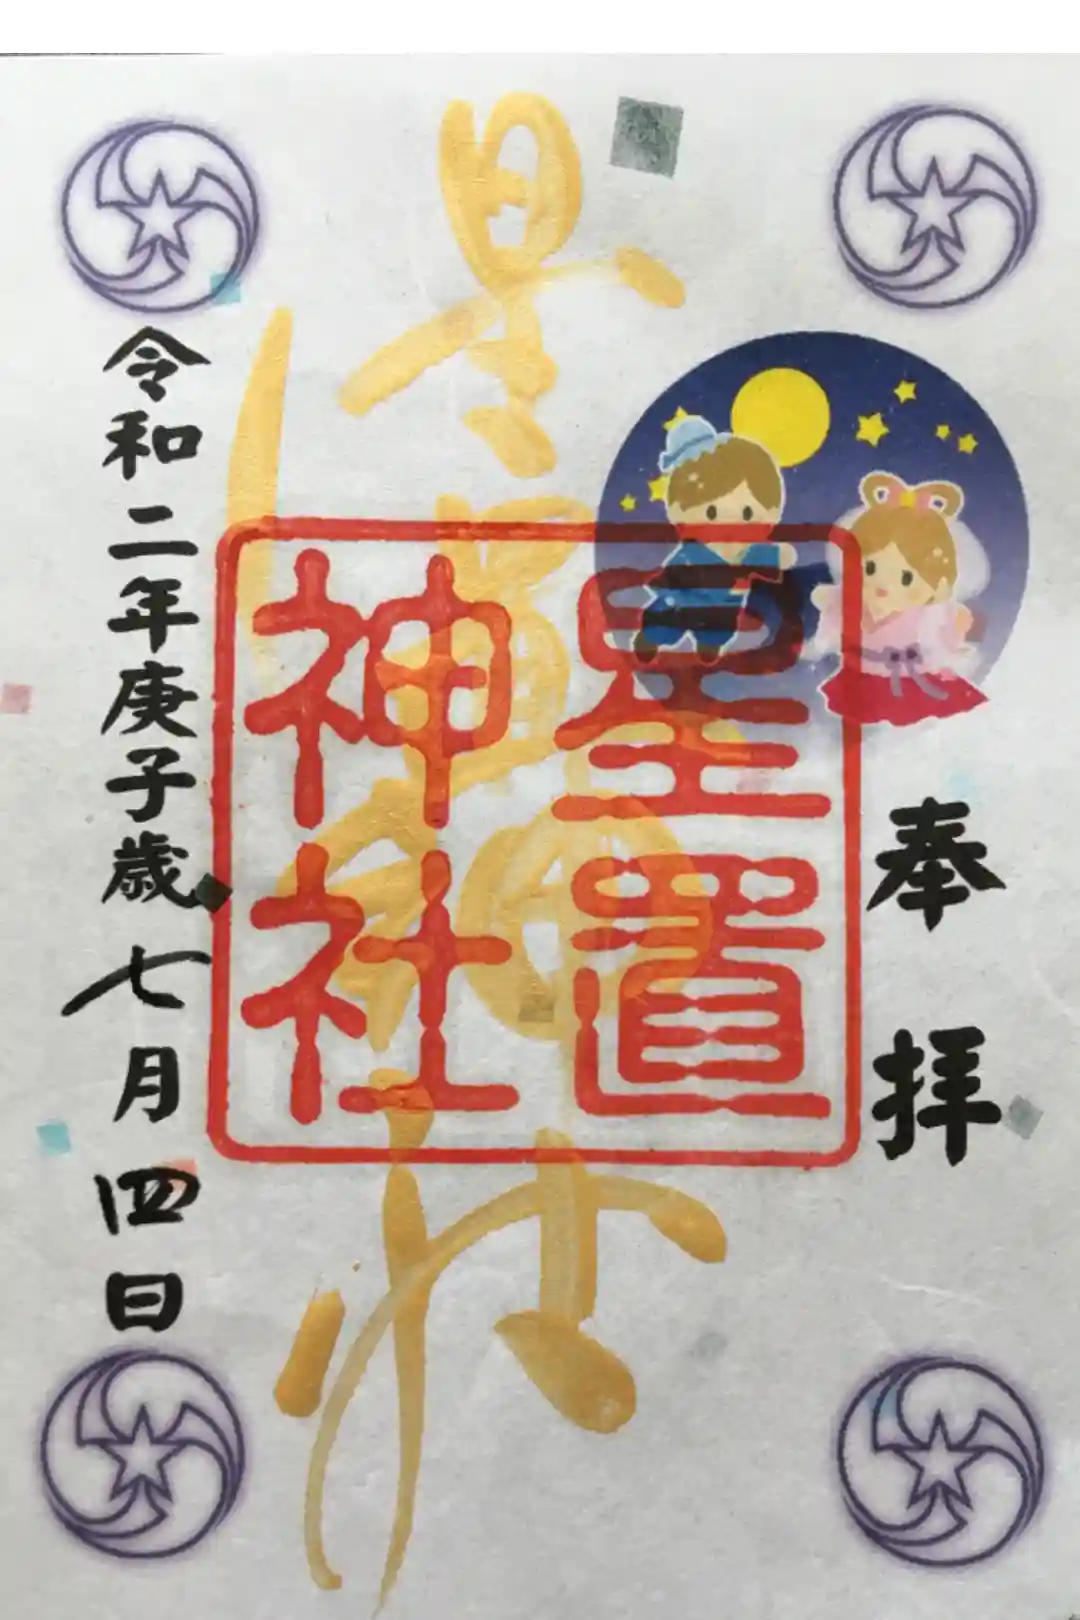 奉拝
星置
神社
星置神社
令和二年庚子歳七月四日